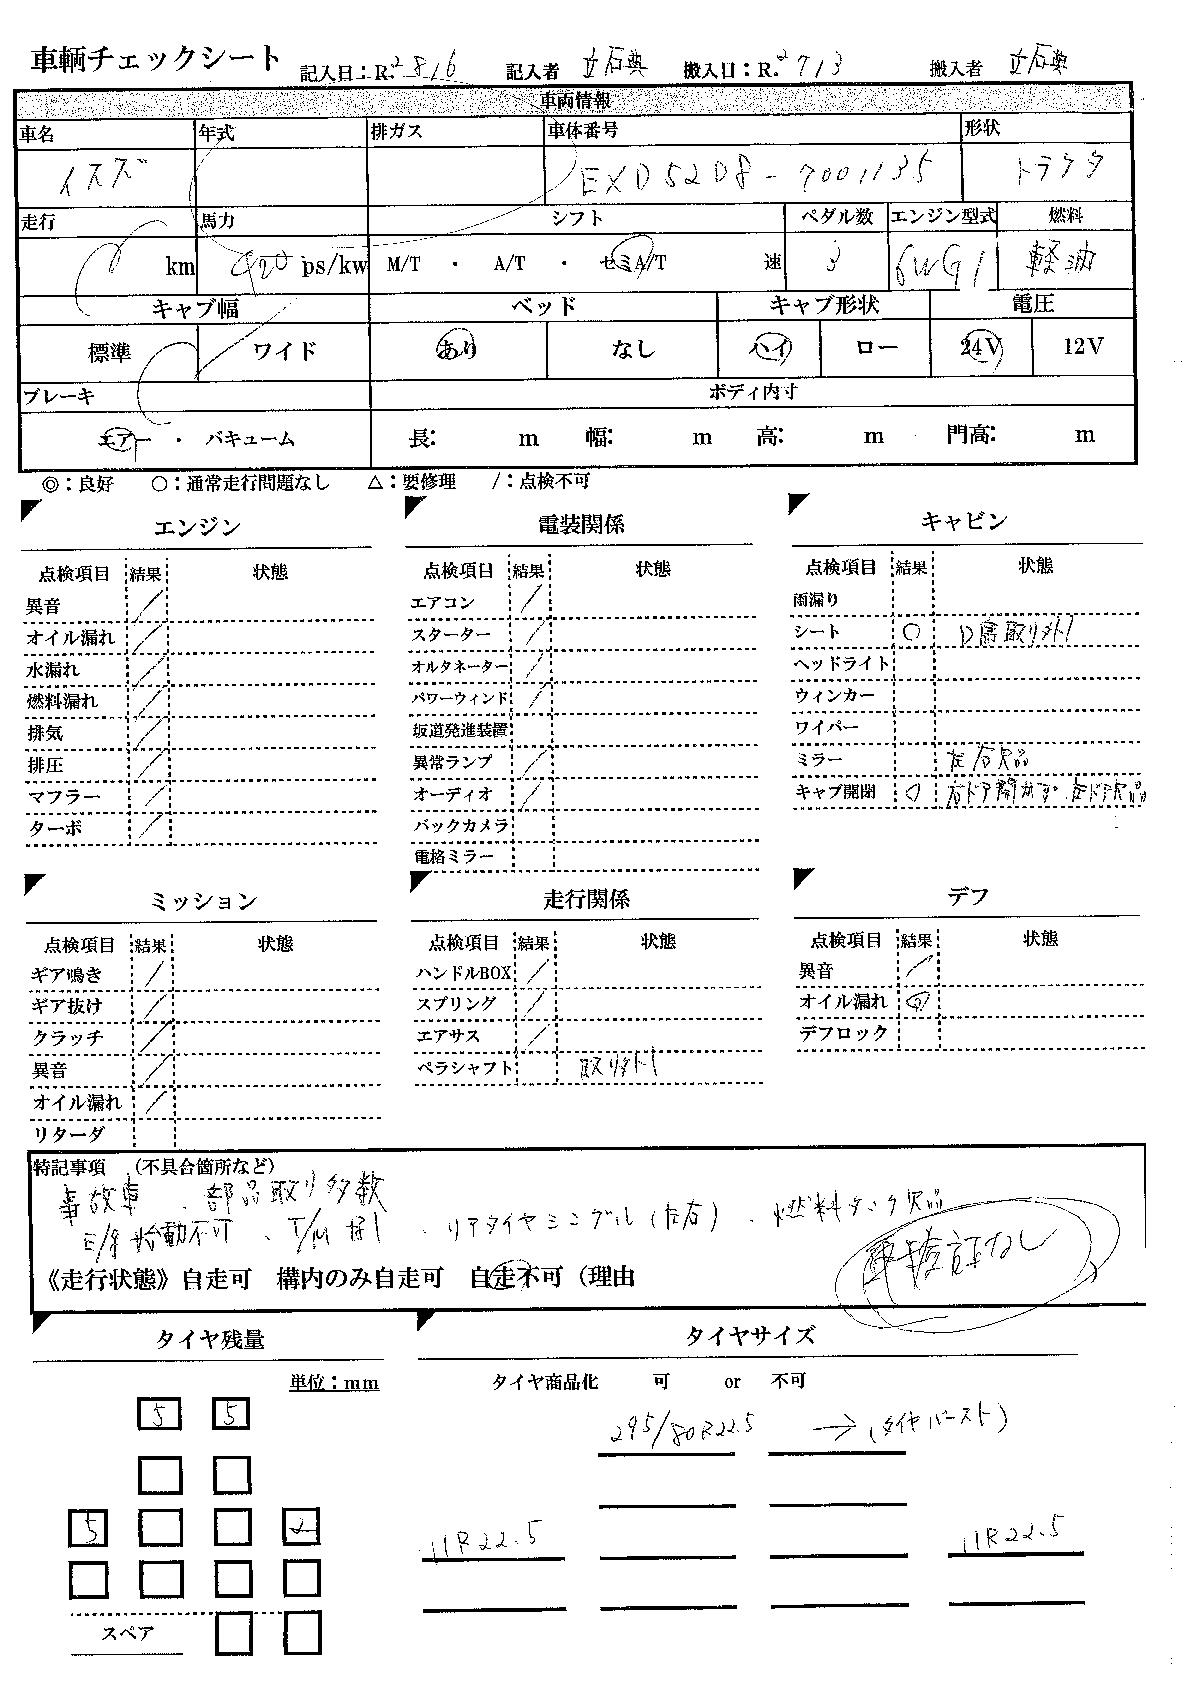 車輌チェックシート 記入日:R.2 8/6 記入者 立石典 搬入日:R.2 7/3 搬入者 立石典
車両情報
車名 年式 排ガス 車体番号 形状
イスズ EXD52D8-7001135 トラクタ
走行 馬力 シフト ペダル数 エンジン型式 燃料
km 420 ps/kw M/T ・ A/T ・ セミA/T 速 3 6WG1 軽油
キャブ幅 ベッド キャブ形状 電圧
標準 ワイド あり なし ハイ ロー 24V 12V
ブレーキ ボディ内寸
エアー ・ バキューム 長: m 幅: m 高: m 門高: m
◎:良好 ○:通常走行問題なし △:要修理 /:点検不可
エンジン
点検項目 結果 状態
異音 /
オイル漏れ /
水漏れ /
燃料漏れ /
排気 /
排圧 /
マフラー /
ターボ /
電装関係
点検項目 結果 状態
エアコン /
スターター /
オルタネーター /
パワーウィンド /
坂道発進装置
異常ランプ /
オーディオ /
バックカメラ
電格ミラー
キャビン
点検項目 結果 状態
雨漏り
シート ○ D席取り外し
ヘッドライト
ウィンカー
ワイパー
ミラー 左右欠品
キャブ開閉 ○ 右ドア開かず。左ドア欠品
ミッション
点検項目 結果 状態
ギア鳴き /
ギア抜け /
クラッチ /
異音 /
オイル漏れ /
リターダ
走行関係
点検項目 結果 状態
ハンドルBOX /
スプリング /
エアサス /
ペラシャフト 取り外し
デフ
点検項目 結果 状態
異音 /
オイル漏れ ◎
デフロック
特記事項 (不具合箇所など)
事故車 、部品取り多数
E/g始動不可 、T/M無し 、リアタイヤシングル(左右) 、燃料タンク欠品
車検証なし
《走行状態》自走可 構内のみ自走可 自走不可(理由
タイヤ残量
単位:mm
5 5
5 2
スペア
タイヤサイズ
タイヤ商品化 可 or 不可
295/80R22.5 → (タイヤバースト)
11R22.5 11R22.5